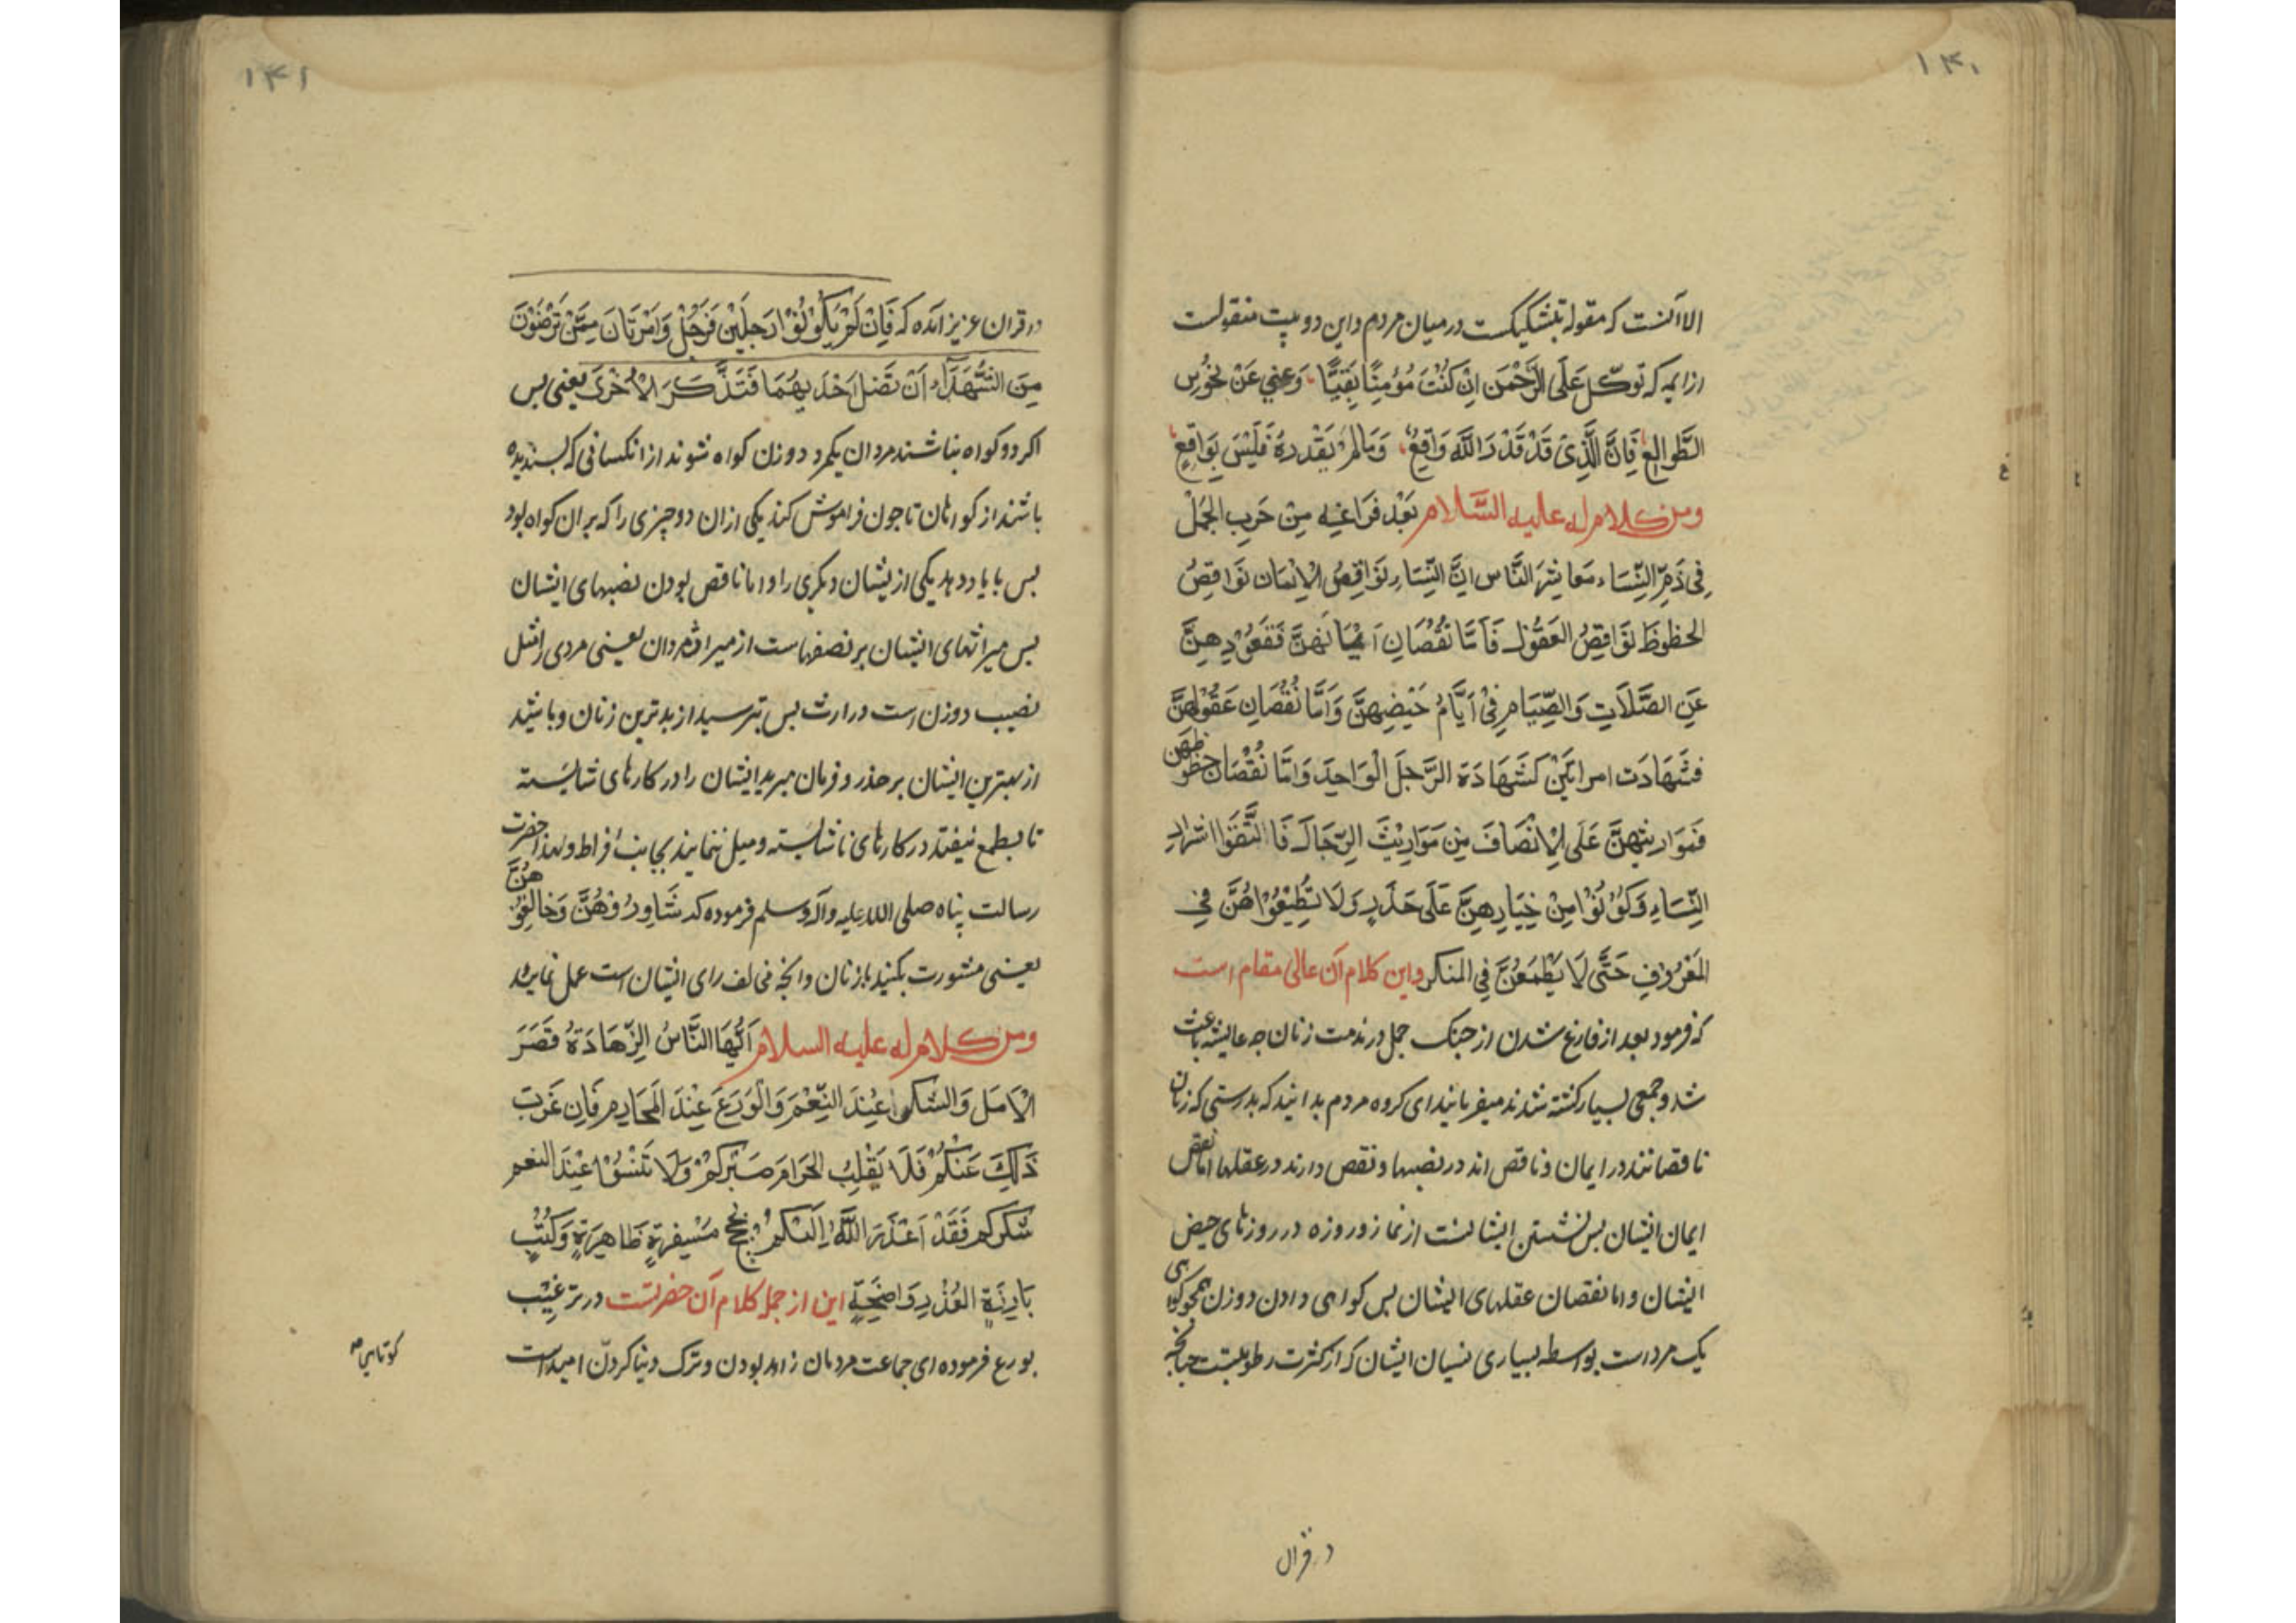 ۱۴۰
الا آنست که مقوله بتشکیکست در میان مردم و این دو بیت منقولست
از ایمه که توکّل عَلَی الرَّحْمَن اِنْ کُنْتَ مُؤْمِنًا یَقِیًّا وَعِنی عَنْ نُحُوسِ
الطَّوالِعِ فَاِنَّ الَّذِیْ قَدْ قَدْ رَ اللّٰهَ وَاقِعٌ وَمَالَمْ یَقْدِرهُ فَلَیْسَ بِوَاقِعٍ
ومن کلام له علیه السَّلام بَعْدَ فَرَاغِهِ مِنْ حَربِ الجَمَلْ
فِی ذَمِّ النِّسَاء مَعاشِرَ النَّاس اِنَّ النِّسَاءِ نَوَاقِصُ الْاِیْمَان نَوَاقِصُ
الحظوظَ نَوَاقِصُ العَقُولِ فَاَمَّا نُقْصَانِ اَیْمَانِهِنَّ فَقَعُوْدِهِنَّ
عَنِ الصَّلَاتِ وَالصِّیَامِ فِیْ اَیَّامِ حَیْضِهِنَّ وَاَمَّا نُقْصَانِ عَقُوْلِهِنَّ
فَشَهَادَت امراتَیْنِ کَشَهَادَة الرَّجلَ الْوَاحِدَ وَاَمَّا نُقْصَان حظوظهن
فَمَوَاریثهنَّ عَلَی الْاِنْصَافَ مِن مَوَارِیْثَ الرِّجَالَ فَا تَّقوَا اشراد
النِّسَاءِ وَکُوْنُوْا مِنْ خِیَارِهِنَّ عَلَی حَذَرٍ وَلَا تُطِیْعُوْاهُنَّ فِی
المَعْرُوْفِ حَتَّی لَا یَطْمَعْنَّ فِی المنکر واین کلام آن عالی مقام است
که فرمود بعد از فارغ شدن از جنک جمل در مذمت زنان چه عایشه باعث
شد و جمعی بسیار کشته شدند میفرمایند ای کروه مردم بدانید که بدرستی که زنان
ناقصانند در ایمان و ناقص اند در نصیبها و نقص دارند در عقلها اما نقص
ایمان ایشان بس نشستن ایشانست از نماز و روزه در روزهای حیض
ایشان و اما نقصان عقلهای ایشان بس کواهی دادن دو زن همچو کواهی
یک مرد است بواسطه بسیاری نسیان ایشان که از کثرت رطوبتست چنانچه
در قران
۱۴۱
در قران عزیز آمده که فَاِنْ لَمْ یَکُوْنُوْا رَجلَیْنِ فَرَجُلٌ وَامْرَتَانَ مِمَّنْ تَرْضَوْنَ
مِنَ الشُّهَدَآءِ اَنْ تَضلَ اَحْدَیهُمَا فَتَذَّکَرَ الْاُخْرَیَ یعنی بس
اکر دو کواه نباشند مردان یکمرد و دو زن کواه شوند از انکسانی که بسندیده
باشند از کواهان تا چون فراموش کند یکی از ان دو چیزی را که بر ان کواه بود
بس با یاد دهد یکی از یشان دیکری را و اما ناقص بودن نصیبهای ایشان
بس میراثهای ایشان بر نصفهاست از میراث مردان یعنی مردی را مثل
نصیب دو زن است در ارث بس بترسید از بدترین زنان و باشید
از بهترین ایشان بر حذر و فرمان مبرید ایشان را در کارهای شایسته
تا بطمع نیفتند در کارهای ناشایسته و میل ننمایند بجانب افراط و لهذا حضرت
رسالت پناه صلی الله علیه و آله وسلم فرموده که شَاوِرُوْهُنَّ وَخالِفُوْهُنَّ
یعنی مشورت بکنید با زنان و انچه مخالف رای ایشان است عمل نمایید
ومن کلام له علیه السلام اَیُّهَا النَّاسُ الِزَّهَادَةُ قَصَرَ
الْاَمَلَ وَالشکر عِنْدَ النِّعْمَ وَالْوَرَعَ عِنْدَ المَحَارِمِ فَاِن غَرَبَ
ذَلِکَ عَنْکُمْ فَلَا یَقْلِبُ الحَرَامَ صَبْرَکُمْ وَلَا تَنْسَوْا عِنْدَ النعم
شکرکم فَقَدْ اَعْذَرَ اللّٰهُ اِلَیْکُمْ بحُجَجٍ مَسْفِرَةٍ ظَاهِرَةٍ وَکُتُبٍ
بَارِزَةِ العُذْرِ وَاضِحَةٍ این از جمله کلام آن حضرتست در ترغیب
بورع فرموده ای جماعت مردمان زاهد بودن و ترک دنیا کردن امیداست
کوتاهی